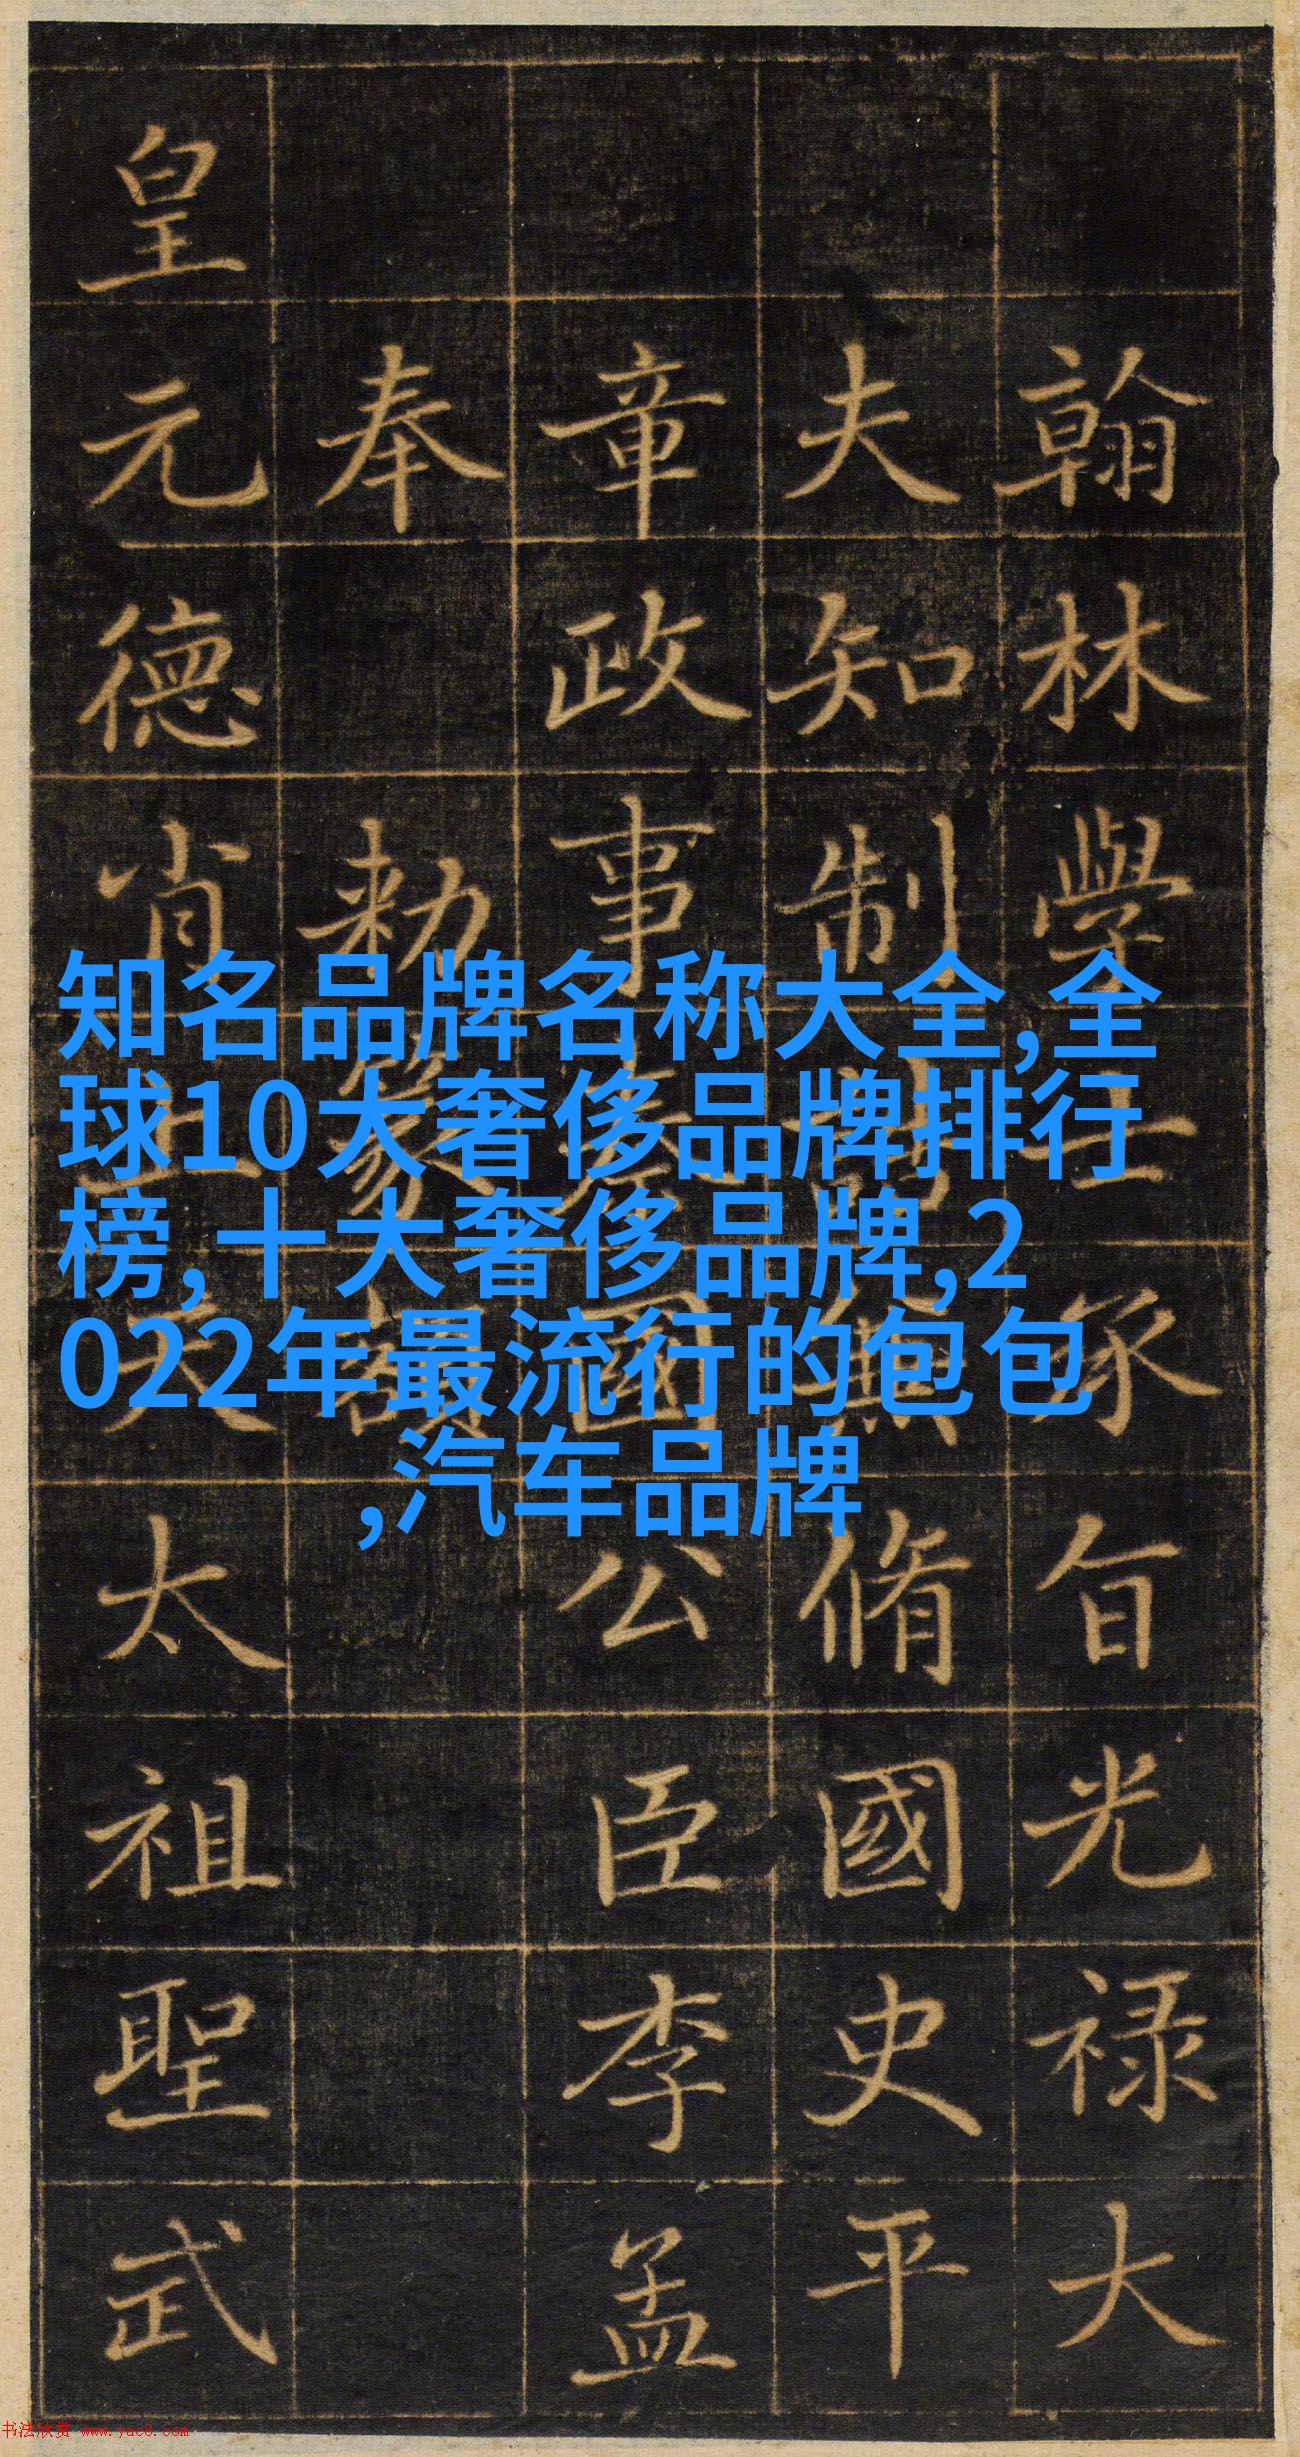 翰林學士承旨光禄大
夫知制脩國史平
章政事國公臣李孟
奉勅
皇元德肖天太祖聖武
知名品牌名称大全,全
球10大奢侈品牌排行
榜,十大奢侈品牌,2
022年最流行的包包
,汽车品牌
书法欣赏 www.yac8.com